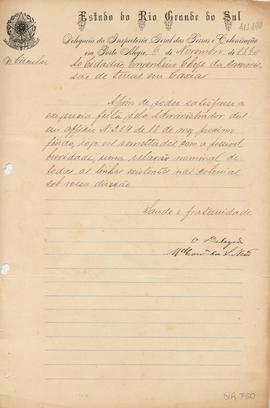 Estado do Rio Grande do Sul
Delegacia da Inspectoria Geral das Terras e Colonisação
em Porto Alegre, 6 de Novembro de 1890
Circular
Ao Cidadão Engenheiro Chefe da Commis-
são de Terras em Caxias
Afim de poder satisfazer a
exigencia feita pelo Administrador
em officio N. 224 de 18 de mez proximo
findo, seja remettida com a possivel
brevidade, uma relação nominal de
todas as linhas existentes nas colonias
sob vossa direcção.
Saude e fraternidade
O Delegado
DIA 750